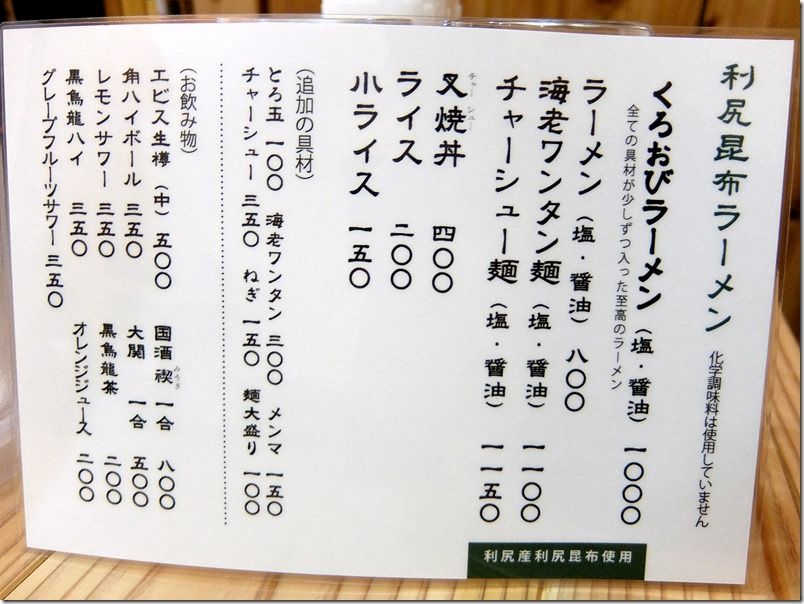 利尻昆布ラーメン
化学調味料は使用していません
くろおびラーメン（塩・醤油）一〇〇〇
全ての具材が少しずつ入った至高のラーメン
ラーメン（塩・醤油）八〇〇
海老ワンタン麺（塩・醤油）一一〇〇
チャーシュー麺（塩・醤油）一一五〇
チャーシュー
叉焼丼 四〇〇
ライス 二〇〇
小ライス 一五〇
（追加の具材）
とろ玉 一〇〇 海老ワンタン 三〇〇 メンマ 一五〇
チャーシュー 三五〇 ねぎ 一五〇 麺大盛り 一〇〇
（お飲み物）
エビス生樽（中）五〇〇
角ハイボール 三五〇
レモンサワー 三五〇
黒烏龍ハイ 三五〇
グレープフルーツサワー 三五〇
みそぎ
国酒 禊 一合 八〇〇
大関 一合 五〇〇
黒烏龍茶 二〇〇
オレンジジュース 二〇〇
利尻産利尻昆布使用